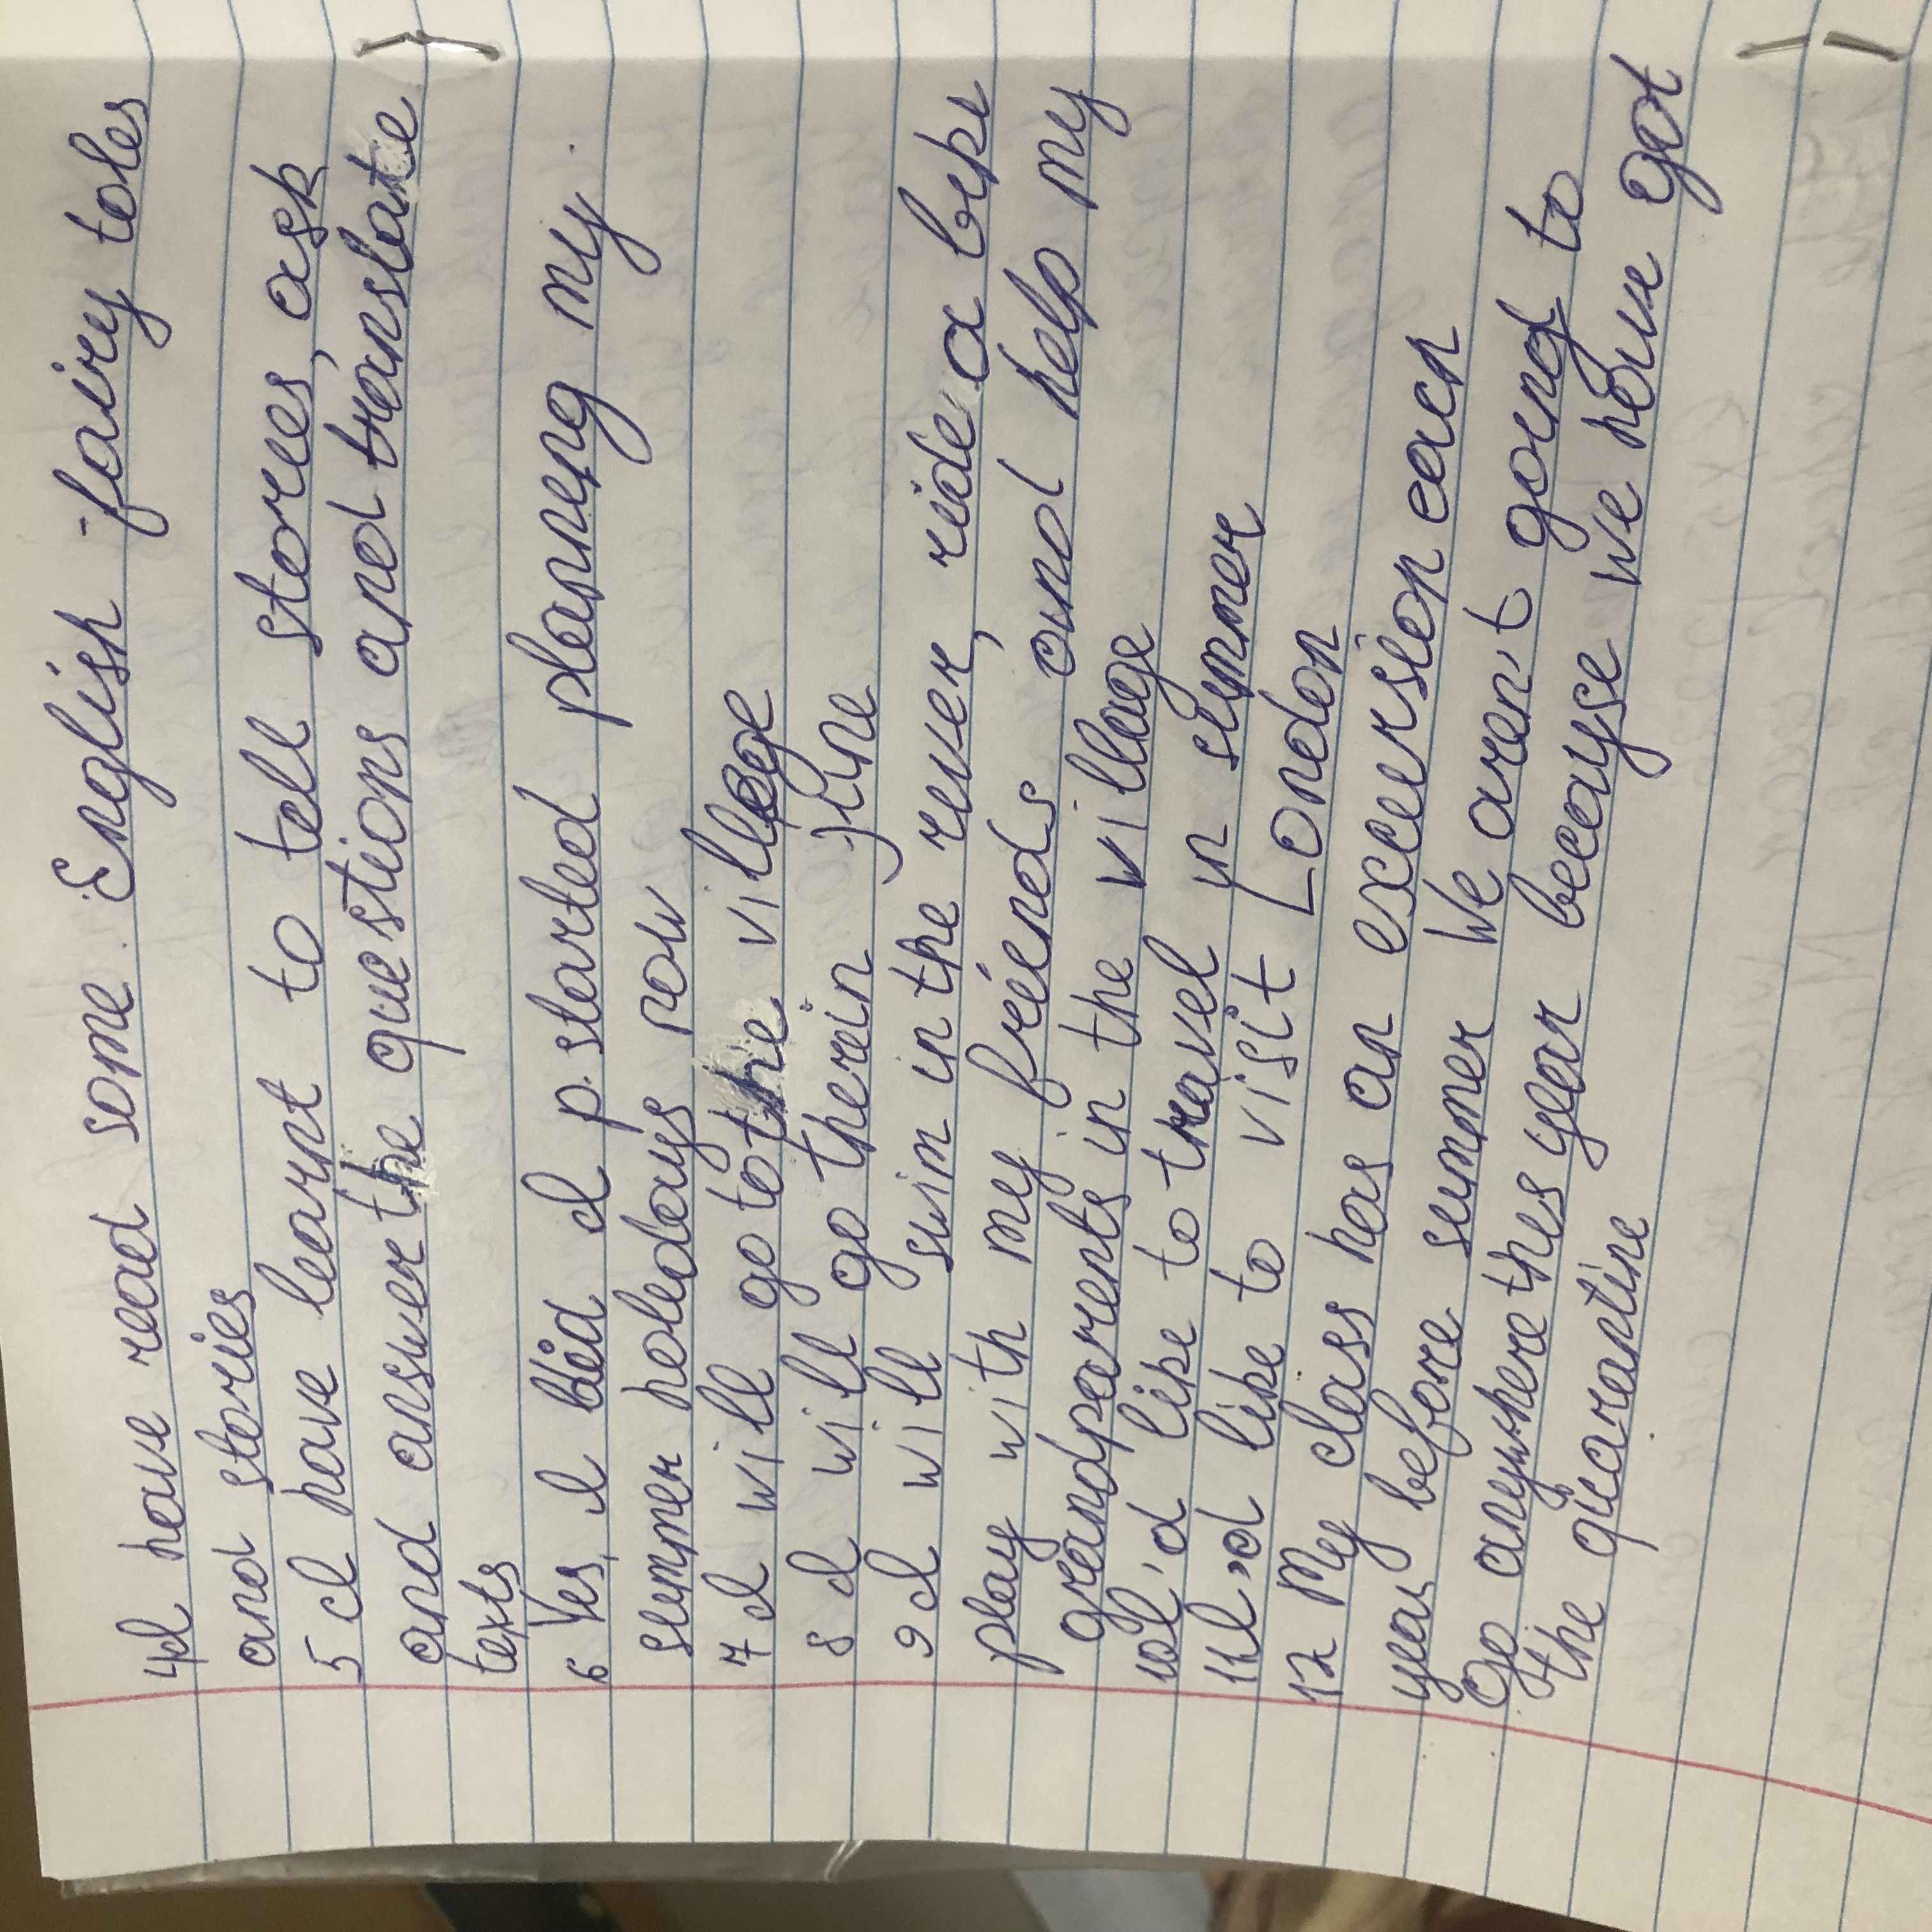 4I have read some English fairy tales
and stories
5 I have learnt to tell stories, ask
and answer the questions and translate
texts
6 Yes, I did I p.started planning my
summer holidays now
7 I will go to the village
8 I will go there in june
9 I will swim in the river, ride a bike
play with my friends and help my
grandparents in the village
10I'd like to travel yn summer
11I'd like to visit London
12 My class has an excursion each
year before summer We aren't going to
go anywhere this year becayse we have got
the quarantine